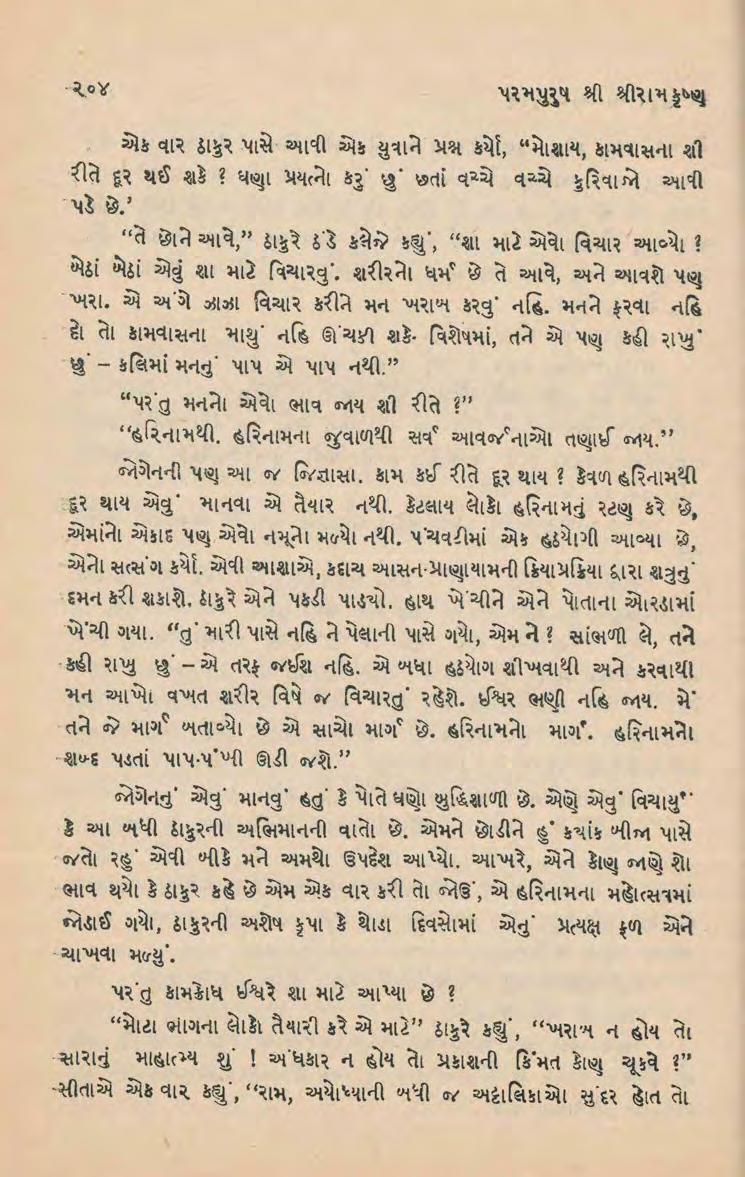 ૨૦૪
પરમપુરુષ શ્રી શ્રીરામકૃષ્ણ
એક વાર ઠાકુર પાસે આવી એક યુવાને પ્રશ્ન કર્યો, “મોશાય, કામવાસના શી
રીતે દૂર થઈ શકે ? ઘણા પ્રયત્નો કરું છું છતાં વચ્ચે વચ્ચે કુરિવાજો આવી
પડે છે.’
“તે છોને આવે,” ઠાકુરે ઠંડે કલેજે કહ્યું, “શા માટે એવો વિચાર આવ્યો ?
બેઠાં બેઠાં એવું શા માટે વિચારવું. શરીરનો ધર્મ છે તે આવે, અને આવશે પણ
ખરા. એ અંગે ઝાઝા વિચાર કરીને મન ખરાબ કરવું નહિ. મનને ફરવા નહિ
દો તો કામવાસના માથું નહિ ઊંચકી શકે. વિશેષમાં, તને એ પણ કહી રાખું
છું – કલિમાં મનનું પાપ એ પાપ નથી.”
“પરંતુ મનનો એવો ભાવ જાય શી રીતે ?”
“હરિનામથી. હરિનામના જુવાળથી સર્વ આવર્જનાઓ તણાઈ જાય.”
જોગેનની પણ આ જ જિજ્ઞાસા. કામ કઈ રીતે દૂર થાય ? કેવળ હરિનામથી
દૂર થાય એવું માનવા એ તૈયાર નથી. કેટલાય લોકો હરિનામનું રટણ કરે છે,
એમાંનો એકાદ પણ એવો નમૂનો મળ્યો નથી. પંચવટીમાં એક હઠયોગી આવ્યા છે,
એનો સત્સંગ કર્યો. એવી આશાએ, કદાચ આસન-પ્રાણાયામની ક્રિયાપ્રક્રિયા દ્વારા શત્રુનું
દમન કરી શકાશે. ઠાકુરે એને પકડી પાડ્યો. હાથ ખેંચીને એને પોતાના ઓરડામાં
ખેંચી ગયા. “તું મારી પાસે નહિ ને પેલાની પાસે ગયો, એમ ને ? સાંભળી લે, તને
કહી રાખુ છું – એ તરફ જઈશ નહિ. એ બધા હઠયોગ શીખવાથી અને કરવાથી
મન આખો વખત શરીર વિષે જ વિચારતું રહેશે. ઈશ્વર ભણી નહિ જાય. મેં
તને જે માર્ગ બતાવ્યો છે એ સાચો માર્ગ છે. હરિનામનો માર્ગ. હરિનામનો
શબ્દ પડતાં પાપ-પંખી ઊડી જશે.”
જોગેનનું એવું માનવું હતું કે પોતે ઘણો બુદ્ધિશાળી છે. એણે એવું વિચાર્યું
કે આ બધી ઠાકુરની અભિમાનની વાતો છે. એમને છોડીને હું કયાંક બીજા પાસે
જતો રહું એવી બીકે મને અમથો ઉપદેશ આપ્યો. આખરે, એને કોણ જાણે શો
ભાવ થયો કે ઠાકુર કહે છે એમ એક વાર કરી તો જોઉં, એ હરિનામના મહોત્સવમાં
જોડાઈ ગયો, ઠાકુરની અશેષ કૃપા કે થોડા દિવસોમાં એનું પ્રત્યક્ષ ફળ એને
ચાખવા મળ્યું.
પરંતુ કામક્રોધ ઈશ્વરે શા માટે આપ્યા છે ?
“મોટા ભાગના લોકો તૈયારી કરે એ માટે” ઠાકુરે કહ્યું, “ખરાબ ન હોય તો
સારાનું માહાત્મ્ય શું ! અંધકાર ન હોય તો પ્રકાશની કિંમત કોણ ચૂકવે ?”
સીતાએ એક વાર કહ્યું, “રામ, અયોધ્યાની બધી જ અટ્ટાલિકાઓ સુંદર હોત તો